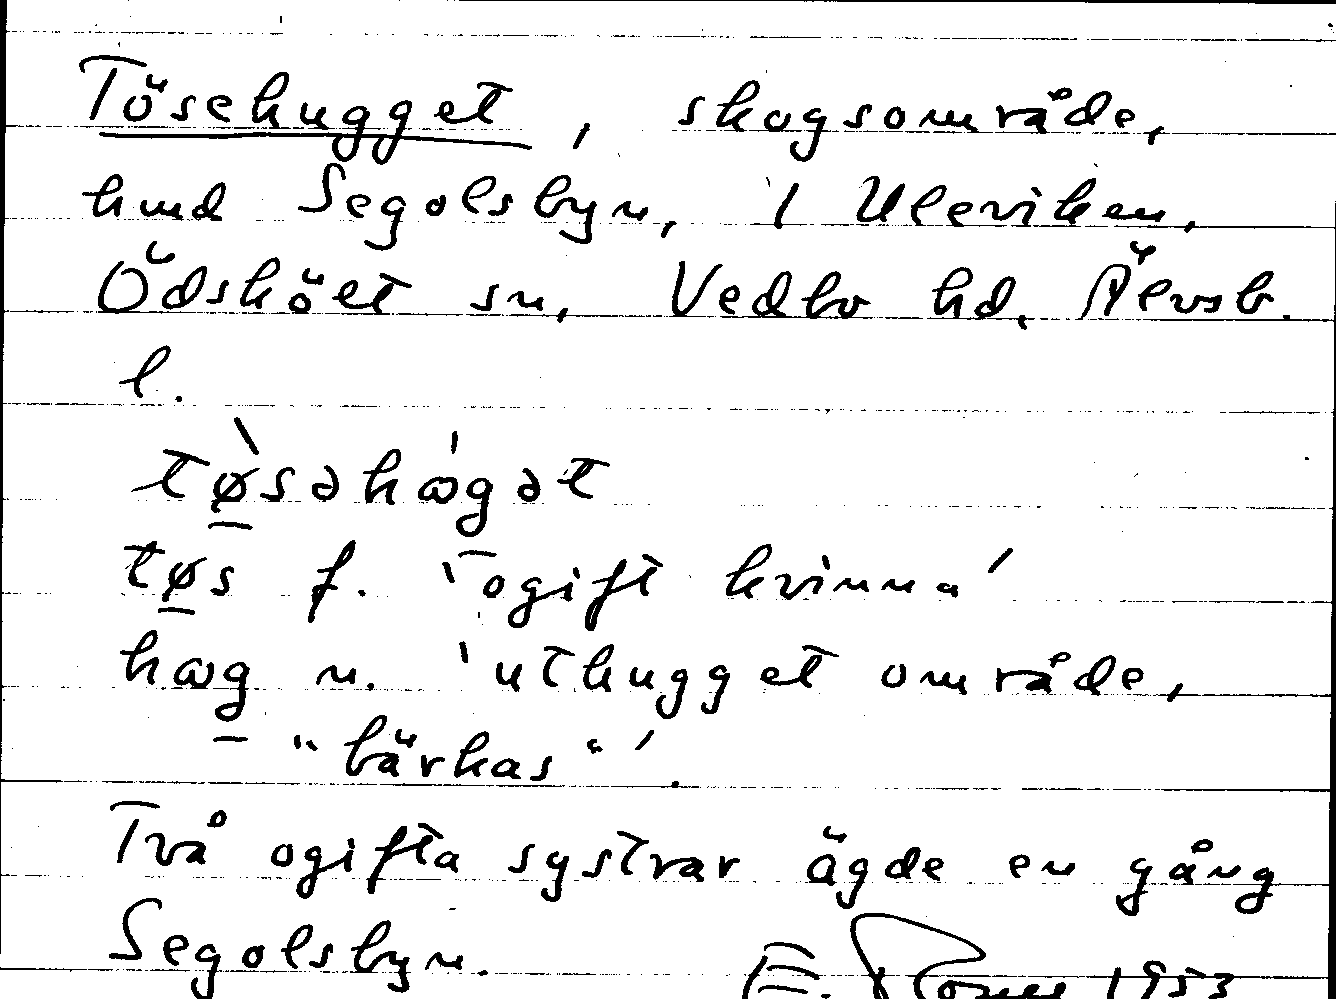 Tösehugget, skogsområde,
hmd Segolsbyn, 1 Uleviken,
Ödskölt sn, Vedbo hd, Älvsb.
l.
tø̱̀səhω̍gət
tø̱s f. 'ogift kvinna'
hωg̱ n. 'uthugget område,
"bärkas"'.
Två ogifta systrar ägde en gång
Segolsbyn.
E. 1953